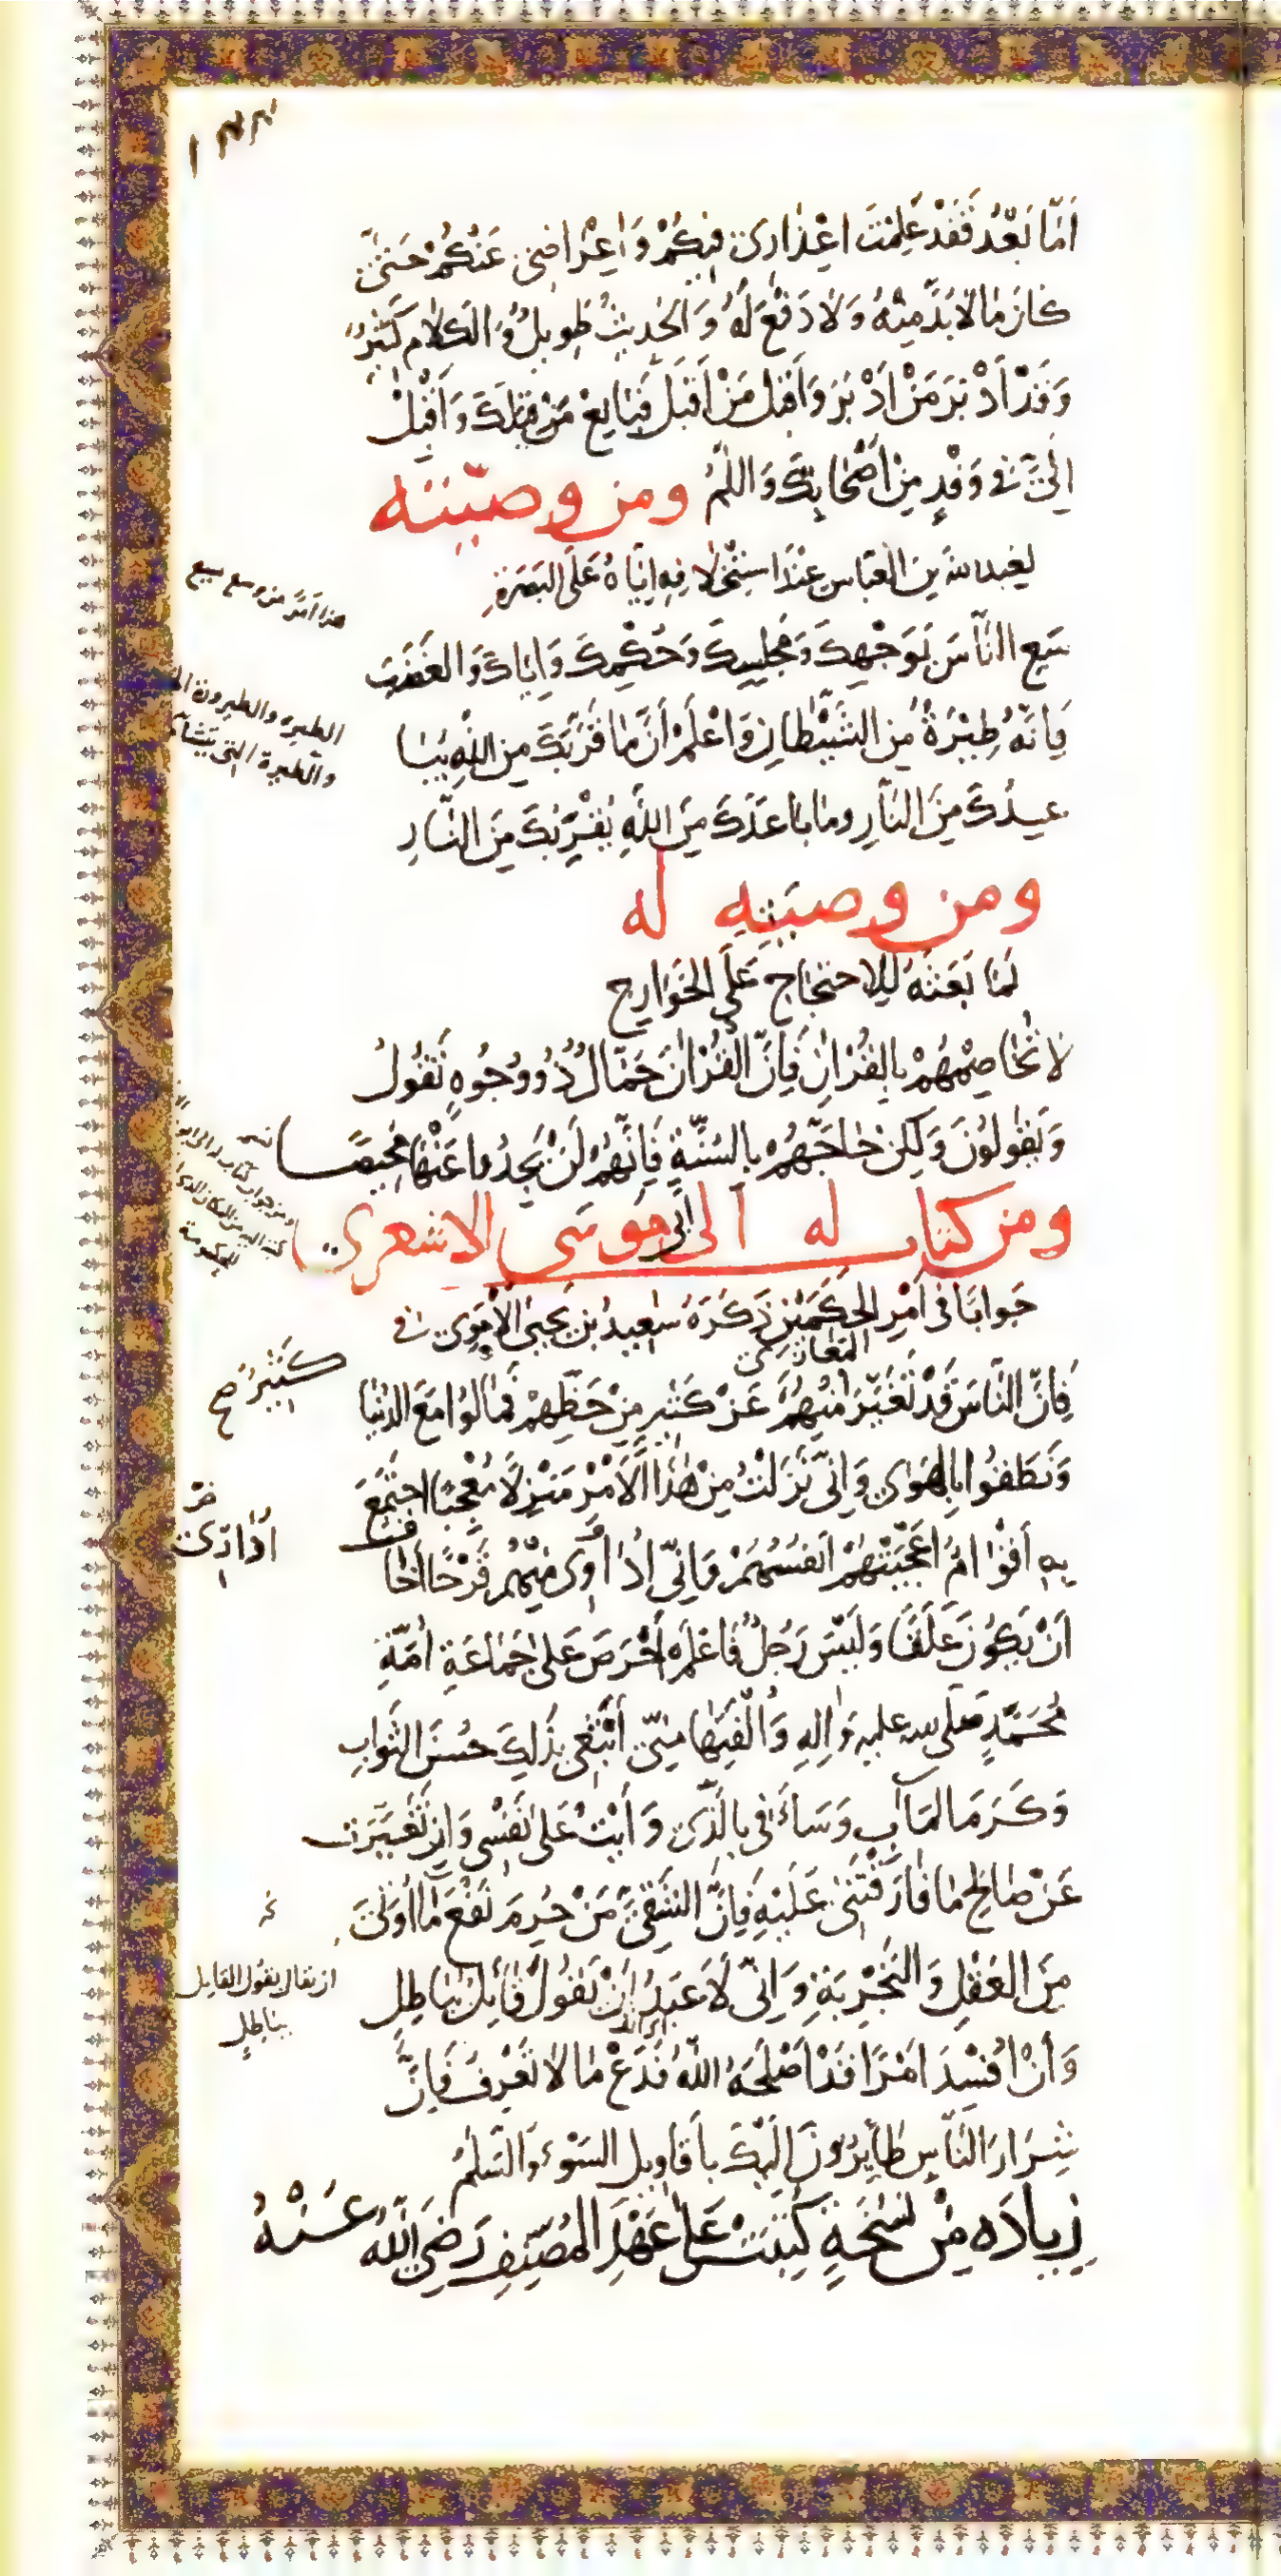 اَمّا بَعْدُ فَقَدْ عَلِمْتَ اعْذارى فيكُمْ وَاعْراضى عَنْكُمْ حَتىّٰ
كانَ مالا بُدَّ مِنْهُ وَلا دَفْعَ لَهُ وَالحَديثُ طَويلٌ وَالكَلامُ كَثيرٌ
وَقَدْ اَدْبَرَ مَنْ اَدْبَرَ وَاَقْبَلَ مَنْ اَقْبَلَ فَبايِعْ مَنْ قِبَلَكَ وَاَقْبِلْ
اِلَىَّ فى وَفْدٍ مِنْ اَصْحابِكَ وَالسَّلٰمُ ومن وصيّته
لعبد الله بن العَبّاسِ عِنْدَ اسْتِخْلافِهِ اِيّاهُ عَلَى البَصَرَةِ
سَعِ النّاسَ بِوَجْهِكَ وَمَجْلِسِكَ وَحُكْمِكَ وَاِيّاكَ وَالغَضَبَ
فَاِنَّهُ طَيْرَةٌ مِنَ الشَّيْطانِ وَاعْلَمْ اَنَّ ما قَرَّبَكَ مِنَ اللّٰهِ يُبا
عِدُكَ مِنَ النّارِ وما باعَدَكَ مِنَ اللّٰهِ يُقَرِّبُكَ مِنَ النّارِ
ومن وصيته له
لَمّا بَعَثَهُ لِلِاحتجاج عَلَى الخَوارِجِ
لا تُخاصِمْهُمْ بِالقُرْاٰنِ فَاِنَّ القُرْاٰنَ حَمّالٌ ذُو وُجُوهٍ تَقُولُ
وَيَقُولُونَ وَلٰكِنْ حاجِّهُمْ بِالسُنَّةِ فَاِنَّهُمْ لَنْ يَجِدُوا عَنْها مَحيصًا
ومن كتاب له الى ابى موسى الاشعرى
جَوابًا فى اَمْرِ الحَكَمَيْنِ ذَكَرَهُ سَعيدُ بن يَحيىَ الاُمَوِى فى
المَغازى
فَاِنَّ النّاسَ قَدْ تَغَيَّرَ مِنْهُمْ عَنْ كَثيرٍ مِنْ حَظِّهِمْ فَمالُوا مَعَ الدُنْيا
وَنَطَقُوا بِالهَوىٰ وَاِنّى نَزَلْتُ مِنْ هٰذَا الاَمْرِ مَنْزِلًا مُعْجِبًا اجْتَمَعَ
بِهِ اَقْوامٌ اَعْجَبَتْهُمْ اَنفُسُهُمْ فَاِنّى اُداوى مِنْهُمْ قَرْحًا اَخافُ
اَنْ يَكُونَ عَلَقًا وَلَيْسَ رَجُلٌ فَاعْلَمْ اَحْرَصَ عَلىٰ جَماعَةِ اُمَّةِ
مُحَمَّدٍ صَلى الله عليه وَاٰلِهِ وَاُلْفَتِها مِنّى اَبْتَغى بِذٰلِكَ حُسْنَ الثَوابِ
وَكَرَمَ المَآبِ وَسَاَفى بِالَّذى وَاَيْتُ عَلىٰ نَفْسى وَاِنْ تَغَيَّرْتَ
عَنْ صالِحِ ما فارَقْتَنى عَلَيْهِ فَاِنَّ الشَقِىَّ مَنْ حُرِمَ نَفْعَ ما اُوتِىَ
مِنَ العَقْلِ وَالتَجْرِبَةِ وَاِنّى لَاَعْبَدُ اَنْ يَقُولَ قائِلٌ بِباطِلٍ
وَاَنْ اُفْسِدَ اَمْرًا قَدْ اَصْلَحَهُ اللّٰهُ فَدَعْ ما لا تَعْرِفُ فَاِنَّ
شِرارَ النّاسِ طائِرُونَ اِلَيْكَ بِاَقاويلِ السَوْءِ وَالسَّلٰمُ
زيادَه مِنْ نُسْخَةٍ كُتِبَتْ عَلىٰ عَهْدِ المُصَنِّفِ رَضِىَ اللّٰهُ عَنْهُ
هذا اَمرٌ من وسع يسع
الطيرة والطيرورة
والطّيرة التى يتشاءم
ومن جواب كتاب له الى ابى
كتبه اليه من المكان الذى
للحكومة
كَثيرٌ صح
اُدارى
ان يقال يقول القايل
بباطِلٍ